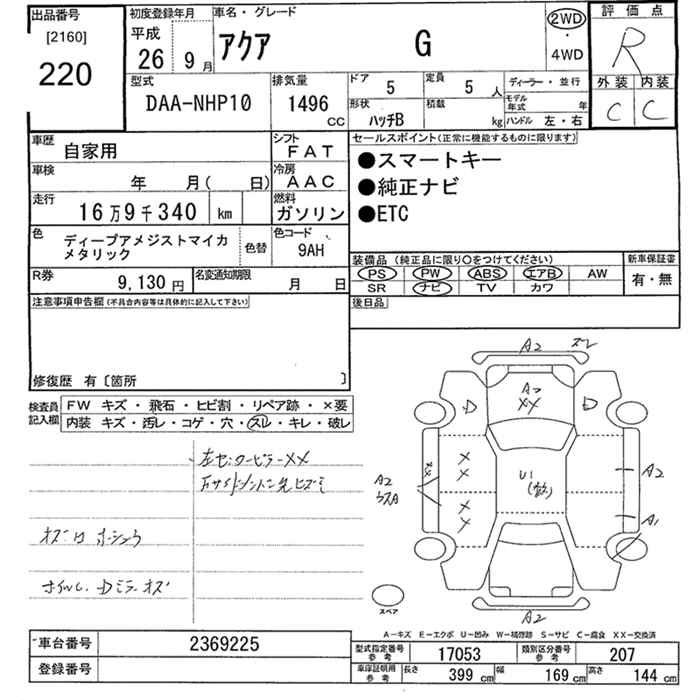 出品番号
[2160]
220
初度登録年月
平成
26 9月
車名・グレード
アクア G
2WD
・
4WD
評価点
R
外装 内装
C C
型式
DAA-NHP10
排気量
1496
CC
ドア
5
定員
5 人
形状
ハッチB
積載
kg
ディーラー・並行
モデル年式 年
ハンドル 左・右
車歴
自家用
車検
年 月( 日)
走行
16万9千340 km
色
ディープアメジストマイカ
メタリック
色替
シフト
FAT
冷房
AAC
燃料
ガソリン
色コード
9AH
R券
9,130円
名変通知期限
月 日
セールスポイント(正常に機能するものに限ります)
●スマートキー
●純正ナビ
●ETC
装備品(純正品に限り○をつけてください)
PS PW ABS エアB AW
SR ナビ TV カワ
新車保証書
有・無
後日品
注意事項申告欄(不具合内容等は具体的に記入して下さい)
修復歴 有〔箇所 〕
検査員
記入欄
FW キズ・飛石・ヒビ割・リペア跡・×要
内装 キズ・汚レ・コゲ・穴・スレ・キレ・破レ
左センターピラーXX
A2 ズレ
A2
XX
D D
X
X
XX
A2
U1
A2
X
X
A1
A2
スペア
A-キズ E-エクボ U-凹み W-補修跡 S-サビ C-腐食 XX-交換済
車台番号 2369225
登録番号
型式指定番号
参考
17053
類別区分番号
参考
207
車庫証明用
参考
長さ 399 cm 幅 169 cm 高さ 144 cm